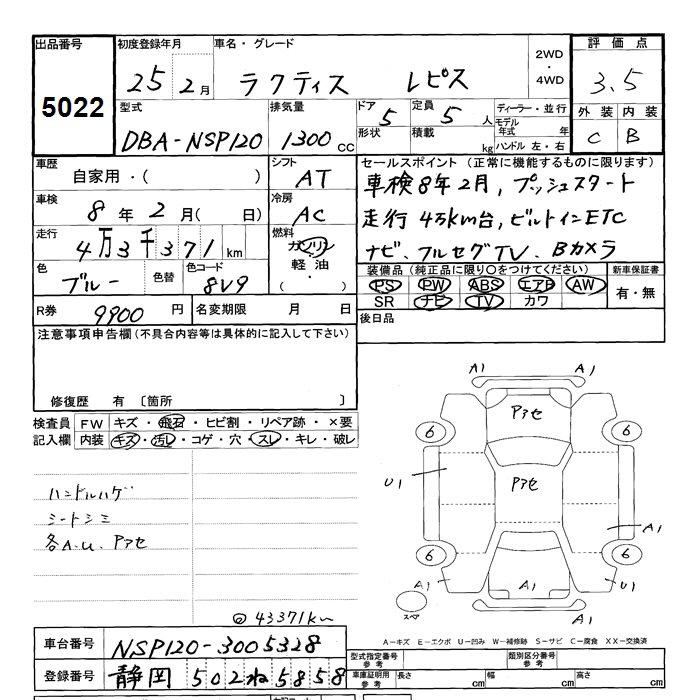 出品番号 初度登録年月 車名・グレード 2WD 評価点
5022 25 2月 ラクティス レピス ・ 4WD 3.5
型式 排気量 ドア 定員 ディーラー・並行 外装 内装
DBA-NSP120 1300cc 5 5人 モデル年式 年 C B
形状 積載 kg ハンドル 左・右
車歴 シフト セールスポイント (正常に機能するものに限ります)
自家用・( ) AT 車検8年2月, プッシュスタート
車検 冷房 走行 4万km台, ビルトインETC
8年 2月( 日) AC ナビ、フルセグTV、Bカメラ
走行 燃料
4万3千371km ガソリン
色 色替 色コード 軽油
ブルー 8V9 ・( )
装備品 (純正品に限り○をつけてください) 新車保証書
PS PW ABS エアB AW 有・無
SR ナビ TV カワ
R券 9900円 名変期限 月 日 後日品
注意事項申告欄(不具合内容等は具体的に記入して下さい)
修復歴 有 〔箇所 〕
検査員 FW キズ・飛石・ヒビ割・リペア跡・×要
記入欄 内装 キズ・汚レ・コゲ・穴・スレ・キレ・破レ
ハンドルハゲ
シートシミ
各A.U. Pアセ
◎43371km
A1 A1
Pアセ
6 6
U1 Pアセ
A1
6 6
A1 A1 U1
スペア
A-キズ E-エクボ U-凹み W-補修跡 S-サビ C-腐食 XX-交換済
車台番号 NSP120-3005328
登録番号 静岡 502 ね 5858
型式指定番号 参考 類別区分番号 参考
車庫証明用 参考 長さ cm 幅 cm 高さ cm